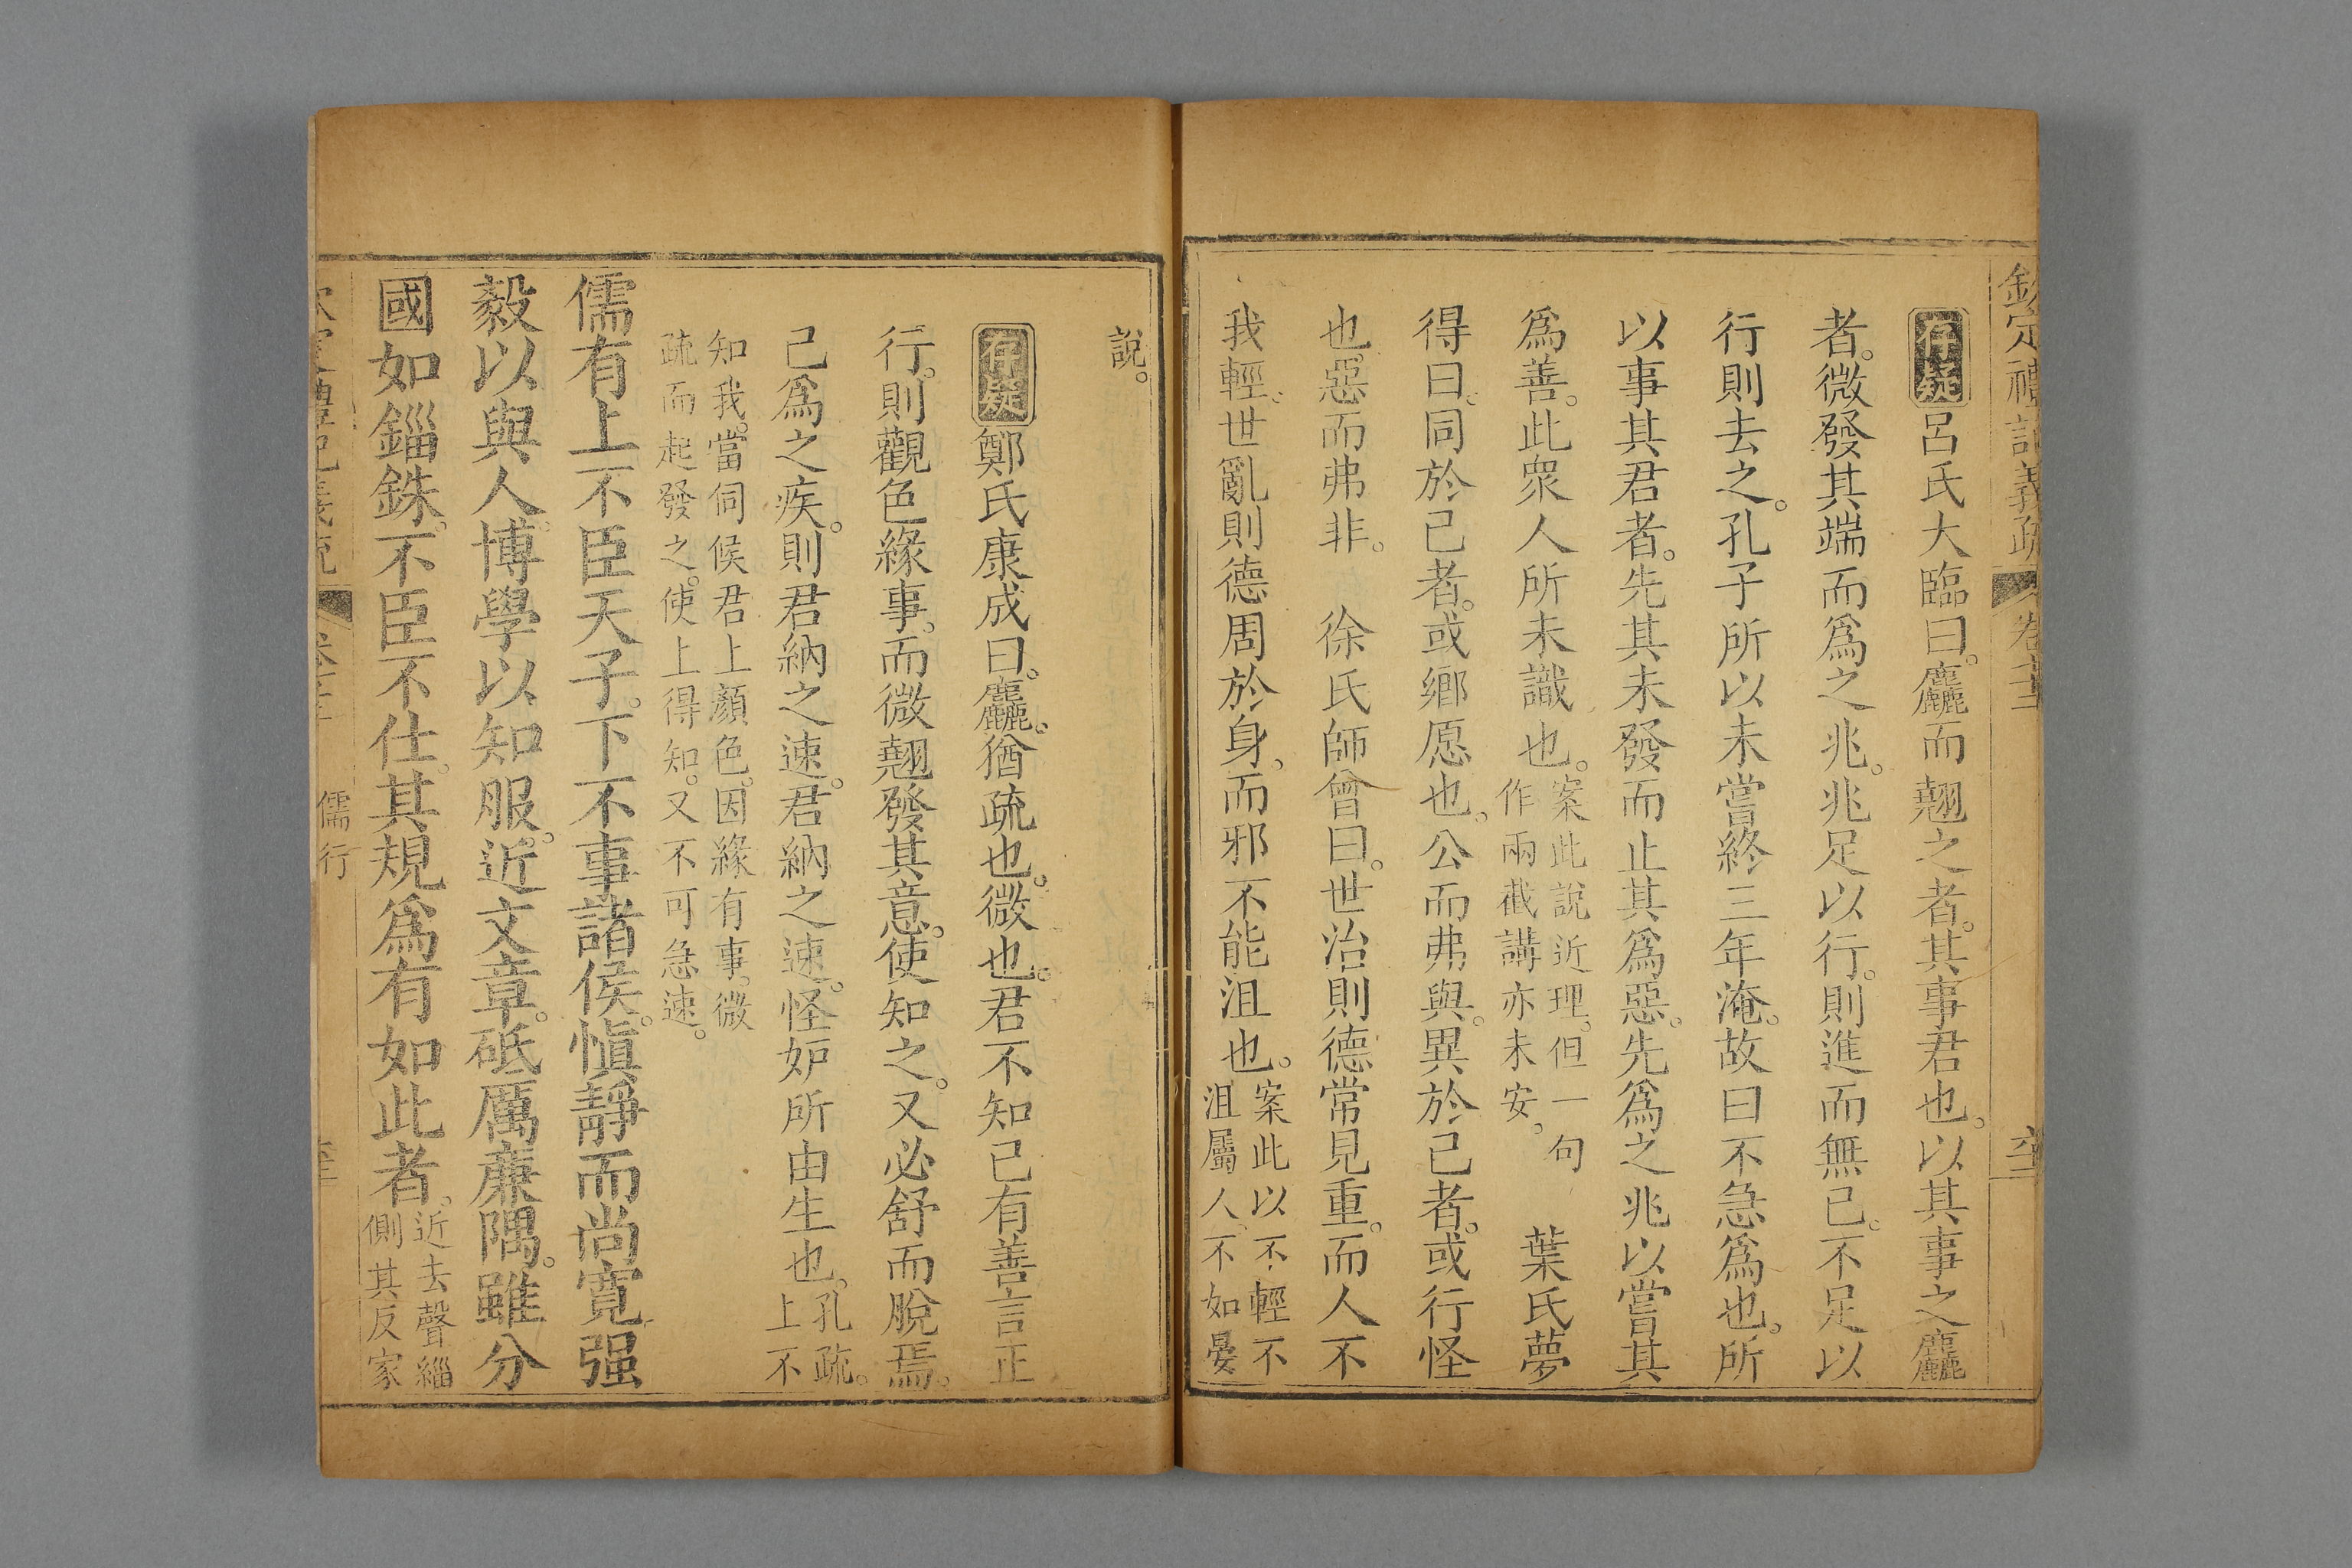 欽定禮記義疏 卷七十二
存疑 呂氏大臨曰。麤而翹之者。其事君也。以其事之麤
者。微發其端而爲之兆。兆足以行。則進而無已。不足以
行則去之。孔子所以未嘗終三年淹。故曰不急爲也。所
以事其君者。先其未發而止其爲惡。先爲之兆以嘗其
爲善。此衆人所未識也。案此說近理。但一句
作兩截講亦未安。 葉氏夢
得曰。同於己者。或鄉愿也。公而弗與。異於己者。或行怪
也。惡而弗非。 徐氏師曾曰。世治則德常見重。而人不
我輕。世亂則德周於身。而邪不能沮也。案此以不輕不
沮屬人。不如晏
說。
存疑 鄭氏康成曰。麤。猶疏也。微也。君不知己有善言正
行。則觀色緣事。而微翹發其意。使知之。又必舒而脫焉。
己爲之疾。則君納之速。君納之速。怪妒所由生也。孔疏。
上不
知我。當伺候君上顏色。因緣有事。微
疏而起發之。使上得知。又不可急速。
儒有上不臣天子。下不事諸侯。愼靜而尚寬。强
毅以與人。博學以知服。近文章。砥厲廉隅。雖分
國如錙銖。不臣不仕。其規爲有如此者。近去聲錙
側其反家
儒行